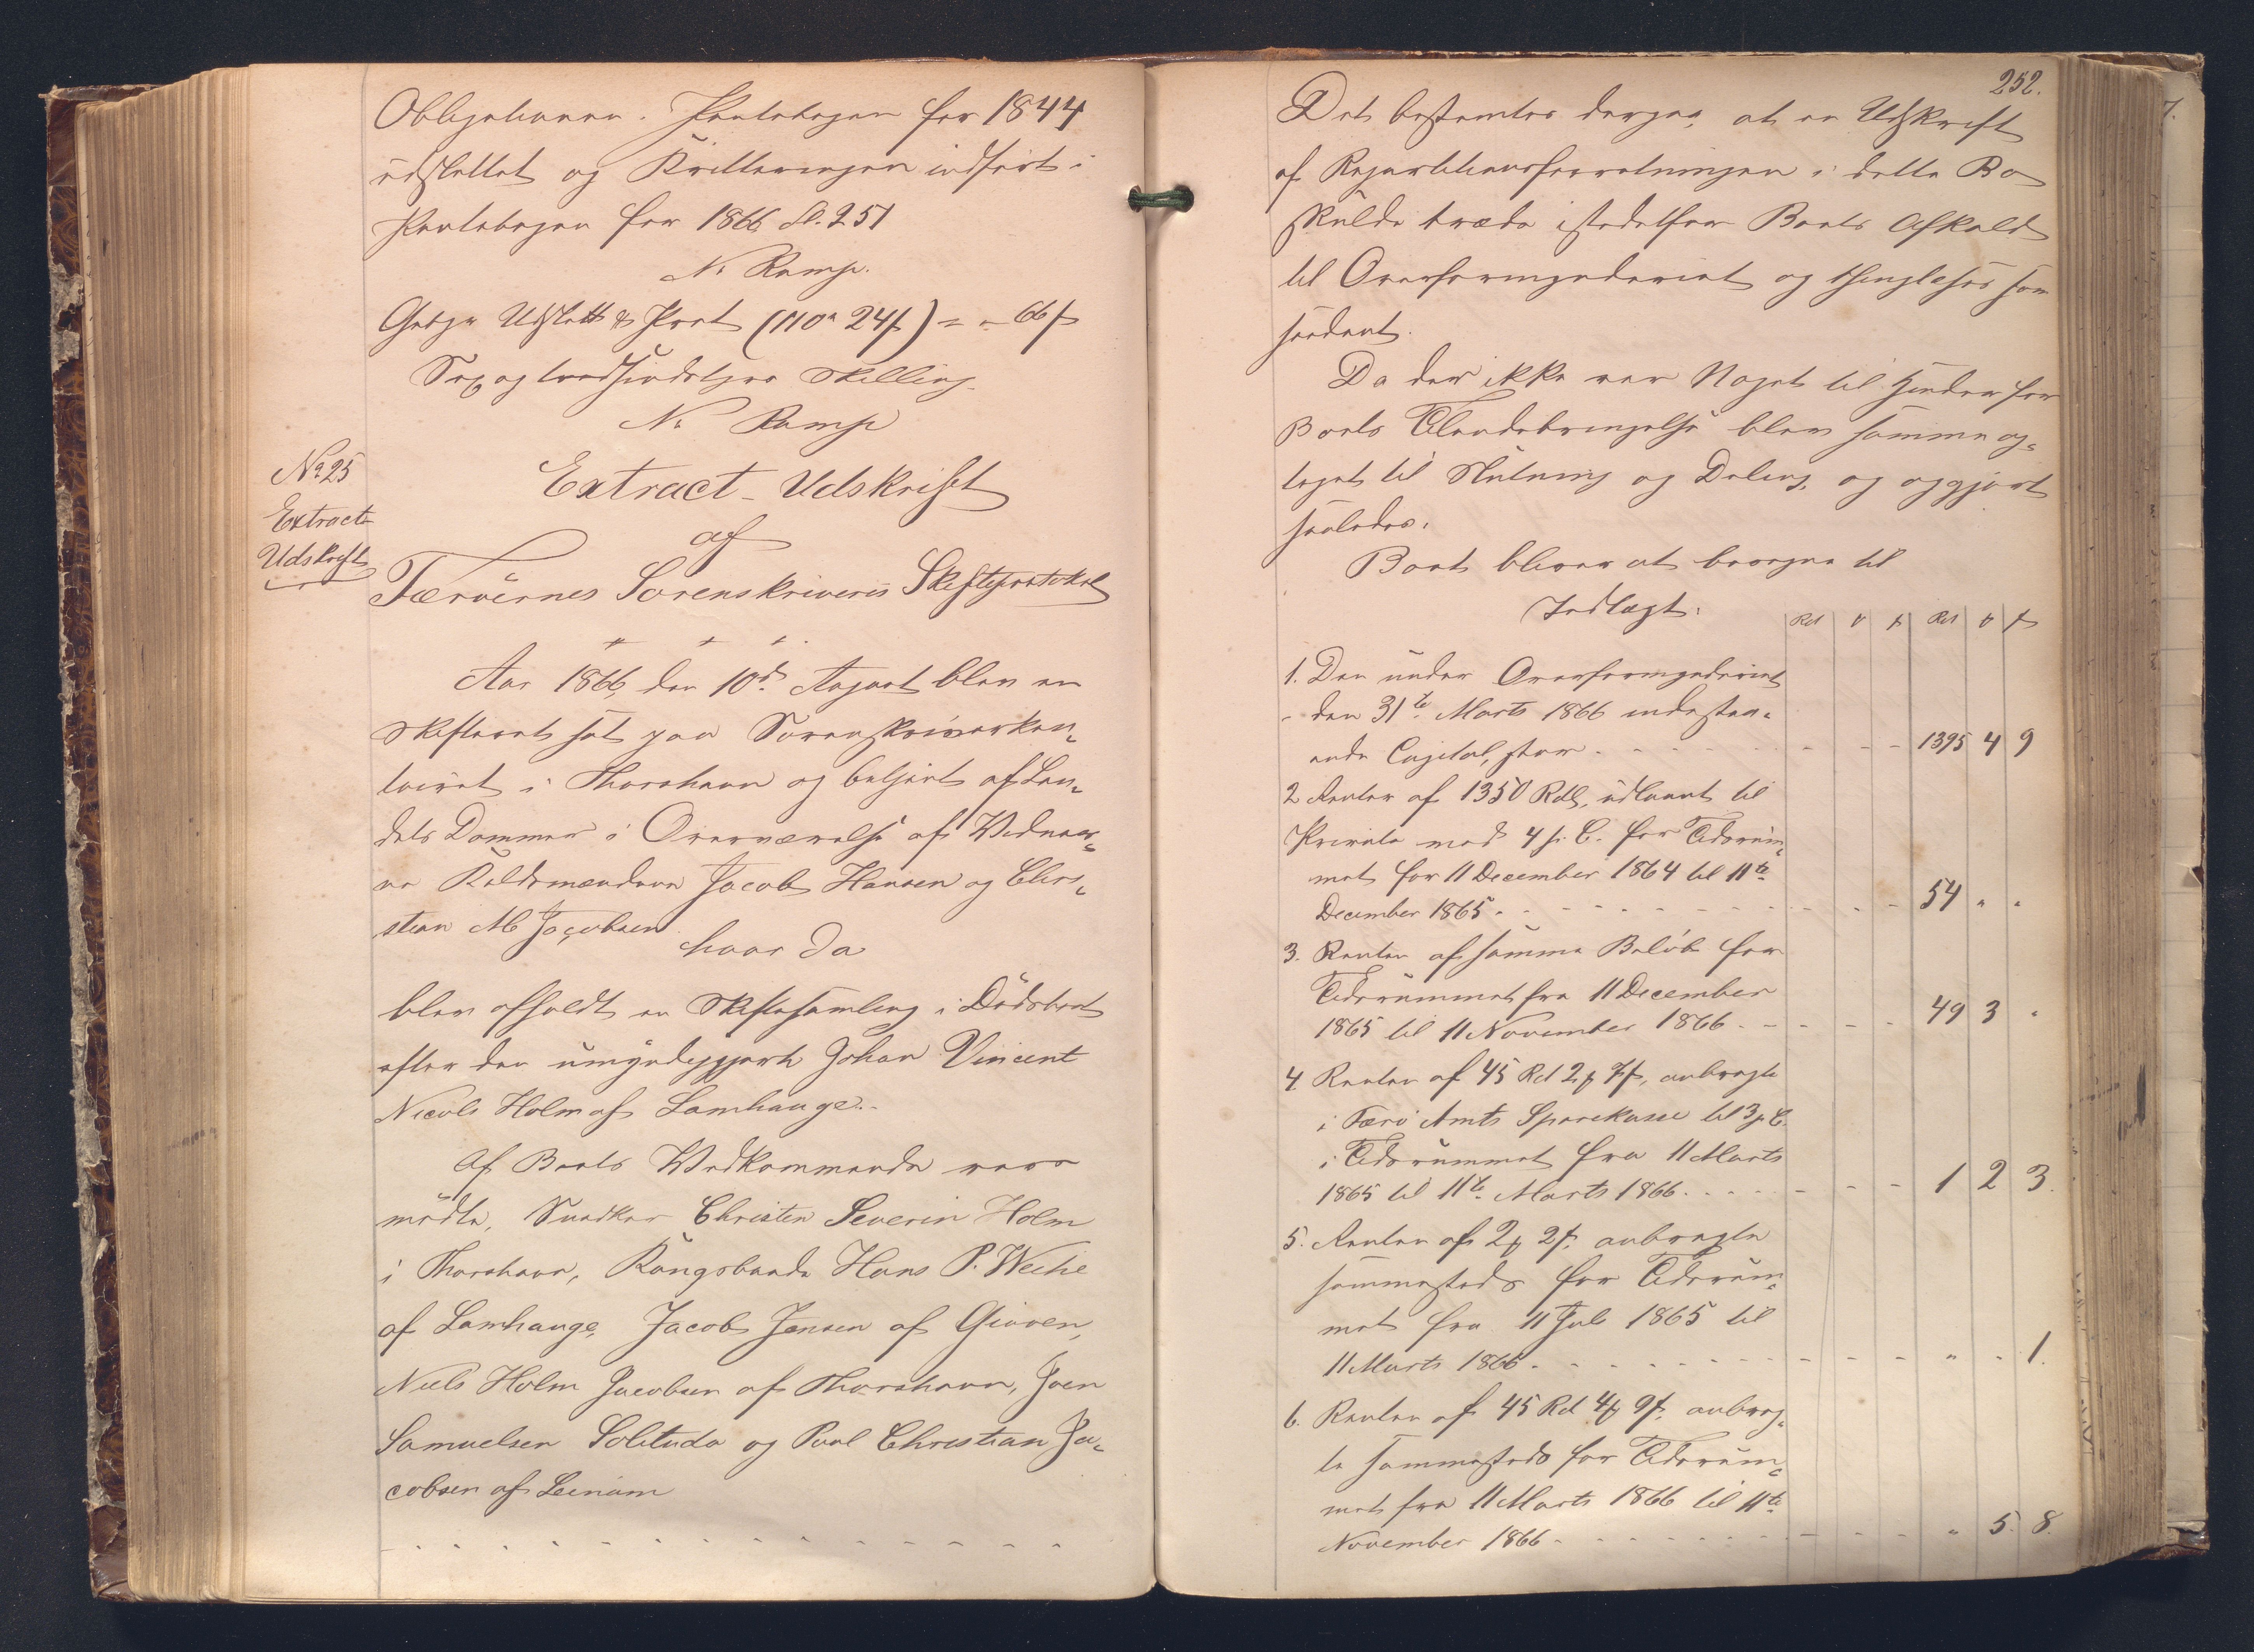 Obligationen i Pantebogen for 1844
udslettet og Kvitteringen indført i
Pantebogen for 1866 Fol. 251
N. Ramp.
Gebyr Udslett & Prot (110a 24s) = - 66s
Sex og tredsindstyve Skilling.
N. Ramp
No 25
Extract
Udskrift
Extract-Udskrift
af
Færöernes Sorenskriveries Skifteprotokol
Aar 1866 den 10de August blev en
Skifteret sat paa Sorenskriverkon-
toiret i Thorshavn og betjent af Lan-
dets Dommer i Overværelse af Vidner-
ne Kaldsmændene Jacob Hansen og Chri-
stian M Jacobsen
hvor da
blev afholdt en Skiftesamling i Dödsboet
efter den umyndiggjorte Johan Vincent
Nicols Holm af Lamhauge.
Af Boets Vedkommende vare
mödte, Snedker Christen Severin Holm
i Thorshavn, Kongsbonde Hans P. Weihe
af Lamhauge, Jacob Jensen af Gioven,
Niels Holm Jacobsen af Thorshavn, Joen
Samuelsen Solitude og Poul Christian Ja-
cobsen af Leinum
252.
Det bestemtes derpaa, at en Udskrift
af Repartitionsforretningen i dette Bo
skulde træde istedetfor Boets Afkald
til Overformynderiet og thinglæses som
saadant.
Da der ikke var Noget til Hinder for
Boets Tilendebringelse blev samme op-
taget til Slutning og Deling, og opgjort
saaledes.
Boet bliver at beregne til
Indtægt:
Rd | ₻ | s | Rd | ₻ | s
1. Den under Overformynderiet
den 31te Marts 1866 indestaa-
ende Capital, stor - - - 1395 4 9
2 Renter af 1350 Rdl, udlaant til
Private mod 4 p. C. for Tidsrum-
met for 11 December 1864 til 11te
December 1865 - - - 54 " "
3. Renten af samme Beløb for
Tidsrummet fra 11 December
1865 til 11 November 1866 - - - 49 3 "
4. Renten af 45 Rd 2₻ 7s, anbragte
i Færö Amts Sparekasse til 3 p. C.
i Tidsrummet fra 11 Marts
1865 til 11te Marts 1866 - - - 1 2 3.
5. Renten af 2₻ 2s, anbragte
sammesteds for Tidsrum-
met fra 11 Juli 1865 til
11 Marts 1866 - - - " - 1.
6. Renten af 45 Rd 4₻ 9s, anbrag-
te sammesteds for Tidsrum-
met fra 11 Marts 1866 til 11te
November 1866 - - - " 5. 8.